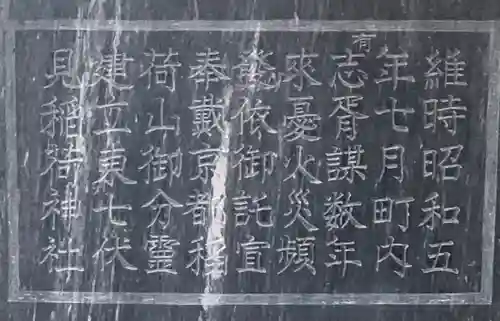 維時昭和五
年七月町内
有志胥謀数年
來憂火災頻
襲依御託宣
奉戴京都稲
荷山御分霊
建立東七伏
見稲荷神社